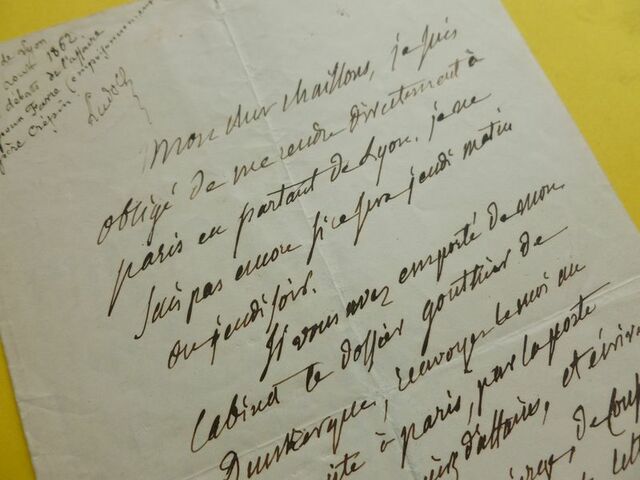 de Lyon
1862
débats de l'affaire
Favre (empoisonnement
Crépin)
Mon cher Chaillous, je suis
obligé de me rendre directement à
paris en partant de Lyon. je ne
sais pas encore si ce sera jeudi matin
ou jeudi soir.
Si vous avez emporté de mon
Cabinet le dossier gouthier de
Dunkerque, renvoyez le moi au
à paris, par la poste
d'affaires, et écrire
de